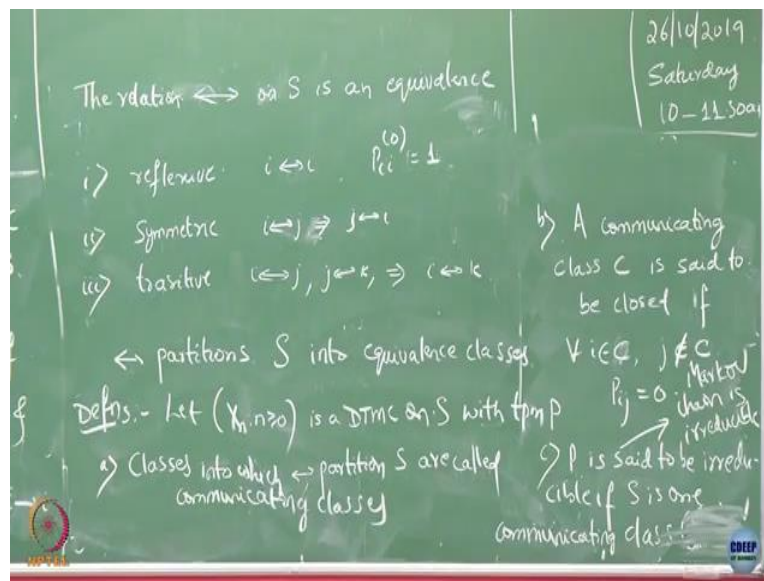 26/10/2019
Saturday
10 - 11.30am
The relation ↔ on S is an equivalence
i) reflexive i↔i P_{ii}^{(0)} = 1
ii) Symmetric i↔j ⇒ j↔i
iii) trasitive i↔j, j↔k, ⇒ i↔k
↔ partitions S into equivalence classes
Defns:- Let (X_n, n≥0) is a DTMC on S with tpm P
a) Classes into which ↔ partition S are called
communicating classes
b) A communicating
class C is said to
be closed if
∀ i∈C, j∉C
P_{ij} = 0
Markov
chain is
irreducible
c) P is said to be irredu-
cible if S is one
communicating class
NPTEL
CDEEP